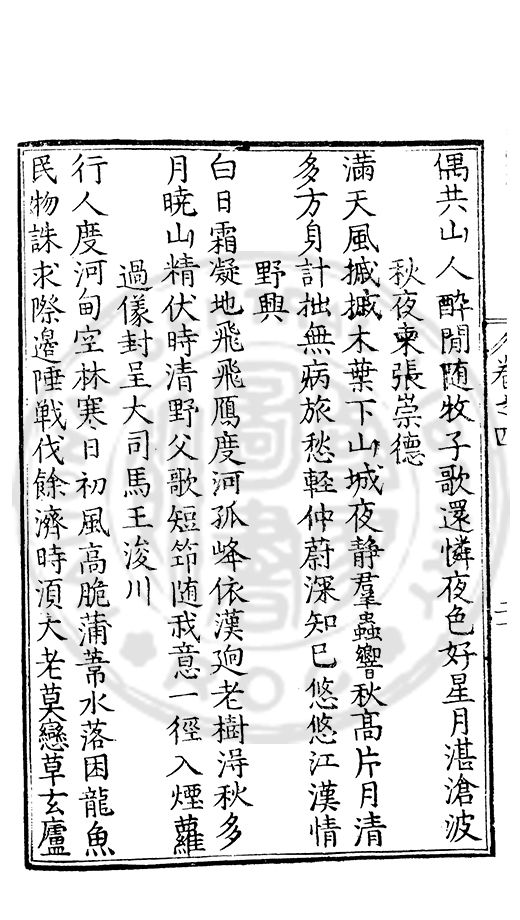 偶共山人醉閒随牧子歌還憐夜色好星月湛滄波
秋夜柬張崇德
滿天風摵摵木葉下山城夜静羣蟲響秋高片月清
多方身計拙無病旅愁輕仲蔚深知已悠悠江漢情
野興
白日霜凝地飛飛鴈度河孤峰依漢迥老樹淂秋多
月曉山精伏時清野父歌短笻随我意一徑入煙蘿
過儀封呈大司馬王浚川
行人度河甸空林寒日初風高脆蒲葦水落困龍魚
民物誅求際邊陲戰伐餘濟時湏大老莫戀草玄廬